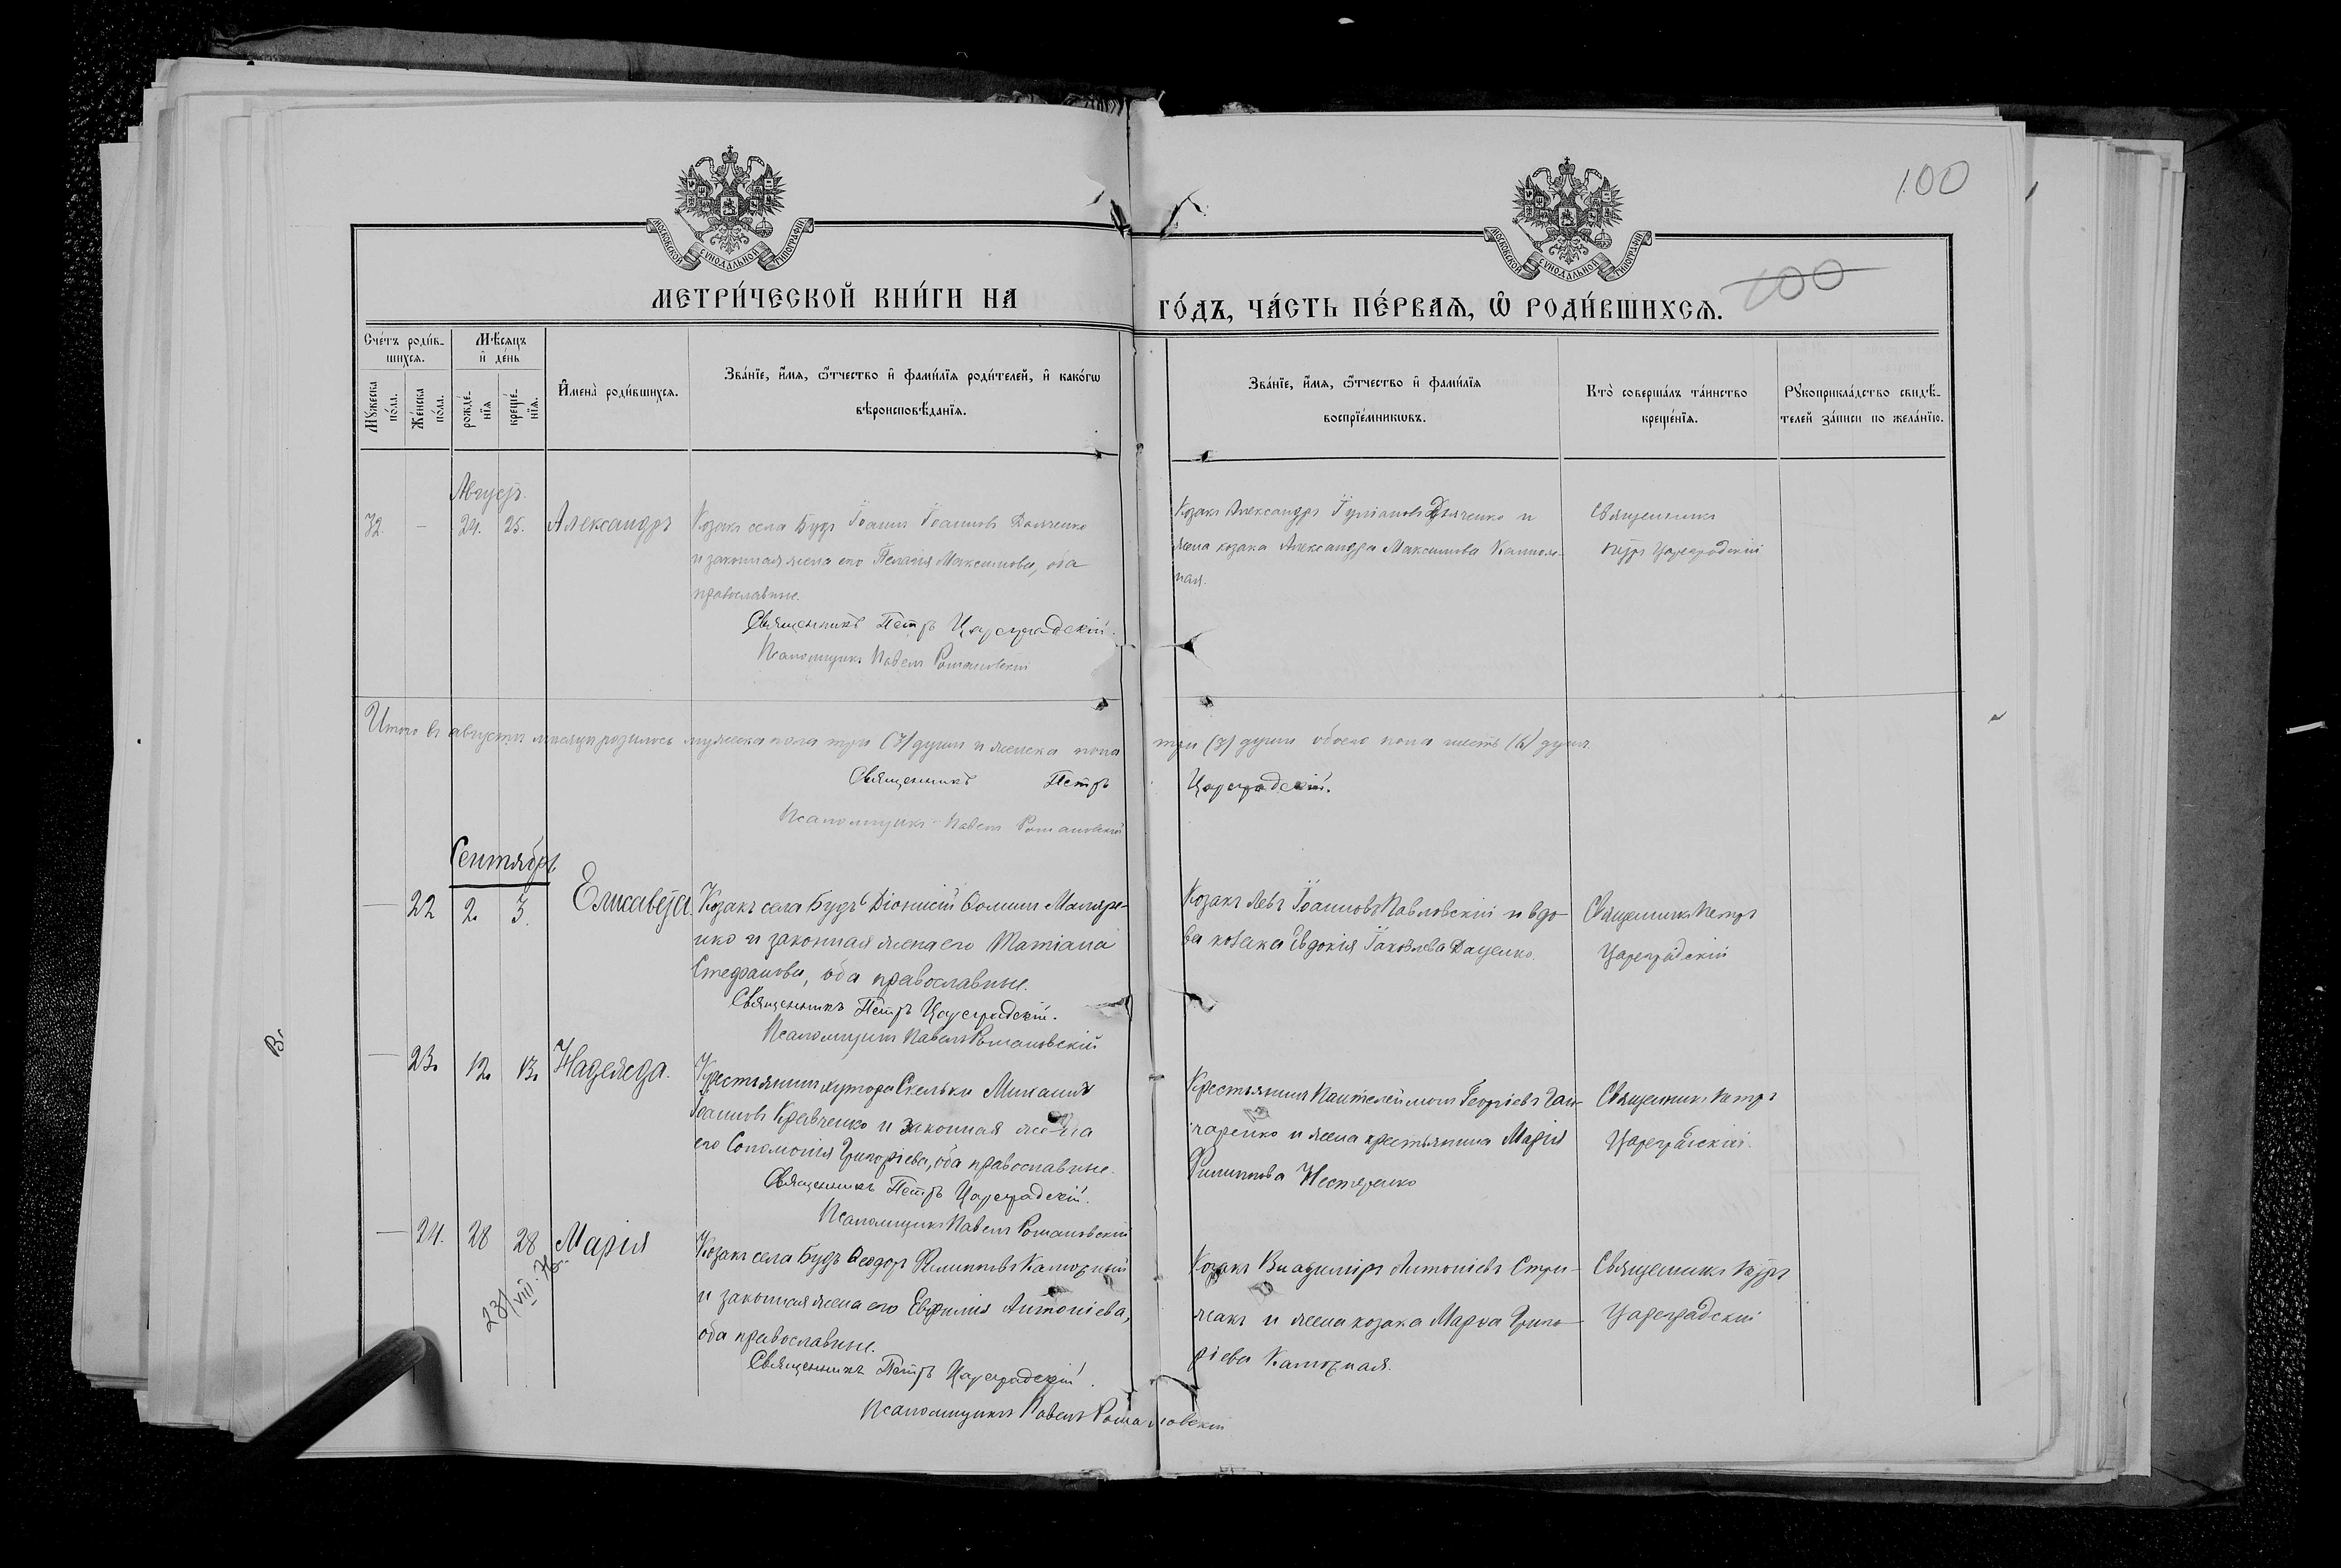 100
МОСКОВСКОЙ СУНОДАЛЬНОЙ ТИПОГРАФІИ
МОСКОВСКОЙ СУНОДАЛЬНОЙ ТИПОГРАФІИ
МЕТРИ́ЧЕСКОЙ КНИ́ГИ НА
ГО́ДЪ, ЧА́СТЬ ПЕ́РВАѦ, Ѡ҆ РОДИ́ВШИХСѦ.
100
Сче́тъ роди́в-
шихсѧ.
Мѣ́сѧцъ
и҆ де́нь
Мꙋ́жеска
по́ла.
Же́нска
по́ла.
рожде́-
нїѧ
креще́-
нїѧ.
И҆мена̀ роди́вшихсѧ.
Зва́нїе, и҆́мѧ, ѻ҆́тчество и҆ фами́лїѧ роди́телей, и҆ како́гѡ
вѣроисповѣ́данїѧ.
Зва́нїе, и҆́мѧ, ѻ҆́тчество и҆ фами́лїѧ
воспрїе́мникѡвъ.
Кто̀ соверша́лъ та́инство
креще́нїѧ.
Рꙋкоприкла́дство свидѣ́-
телей за́писи по жела́нїю.
Августъ.
32. — 24. 25. Александръ
Козакъ села Будъ Іоаннъ Іоанновъ
и законная жена его Пелагія Максимова, оба
православные.
Священникъ Петръ Цареградскій.
Псаломщикъ Павелъ Романовскій
Козакъ Александръ Дьяченко и
жена козака Александра Максимова
ная.
Священникъ
Петръ Цареградскій
Итого въ августѣ мѣсяцѣ родилось мужеска пола три (3) души и женска пола три (3) души обоего пола шесть (6) душъ.
Священникъ Петръ Цареградскій.
Псаломщикъ Павелъ Романовскій
Сентябрь
— 22 2. 3. Елисавета.
Козакъ села Будъ Діонисій Ѳоминъ Маляре-
нко и законная жена его Татіана
Стефанова, оба православные.
Священникъ Петръ Цареградскій.
Псаломщикъ Павелъ Романовскій
Козакъ Левъ Іоанновъ Павловскій и вдо-
ва козака Евдокія Іаковлева Даценко.
Священникъ Петръ
Цареградскій
— 23. 12. 13. Надежда.
Крестьянинъ хутора Скельки Михаилъ
Іоанновъ Кравченко и законная жена
его Соломонія Григоріева, оба православные.
Священникъ Петръ Цареградскій.
Псаломщикъ Павелъ Романовскій
Крестьянинъ Пантелеймонъ Георгіевъ Ган-
чаренко и жена крестьянина Марія
Филиппова Нестеренко
Священникъ Петръ
Цареградскій.
— 24. 28 28 Марія
Козакъ села Будъ Ѳеодоръ Филипповъ Каторный
и законная жена его Евфимія Антоніева,
оба православные.
Священникъ Петръ Цареградскій.
Псаломщикъ Павелъ Романовскій
Козакъ Владиміръ Антоніевъ Стри-
жакъ и жена козака Марѳа Григо-
ріева Каторная.
Священникъ Петръ
Цареградскій